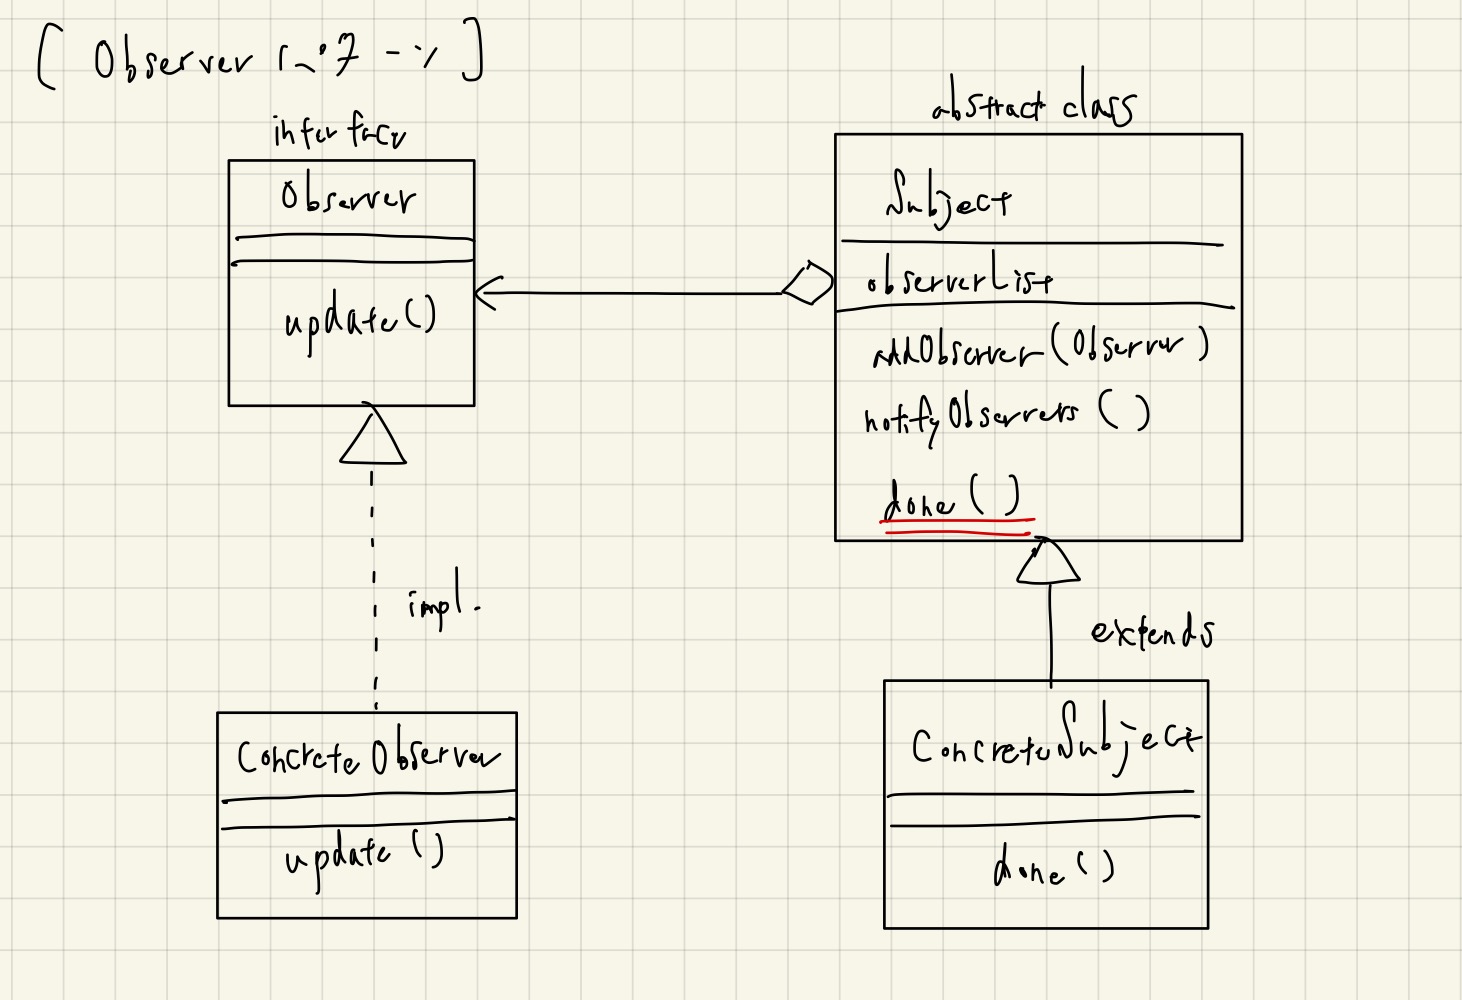 [ Observer パターン ]
interface
Observer
update()
abstract class
Subject
observerList
addObserver(Observer)
notifyObservers ( )
done ( )
impl.
extends
ConcreteObserver
update ()
ConcreteSubject
done ()